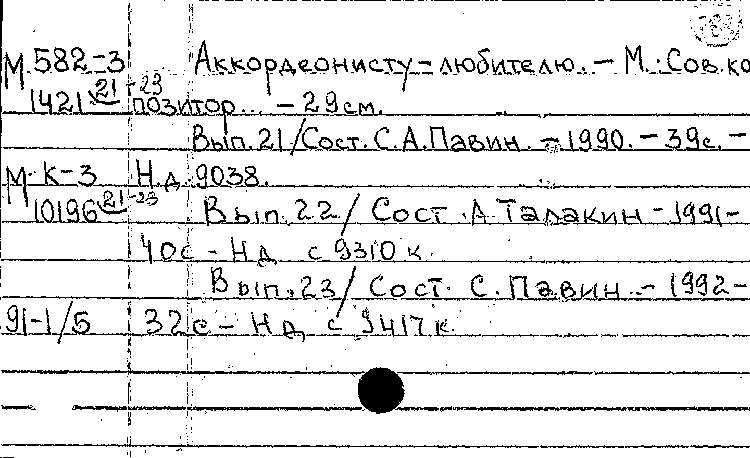 М 582-3 Аккордеонисту-любителю. - М.: Сов.ко
1421 21-23 позитор... - 29см.
Вып.21/Сост. С.А.Павин. - 1990. - 39с. -
М К-3 Н.д. 9038.
10196 21-23 Вып.22/ Сост. А.Талакин - 1991-
40с - Нд с 9310 к.
Вып.23/ Сост. С.Павин. - 1992-
91-1/5 32с - Нд с 9417к.